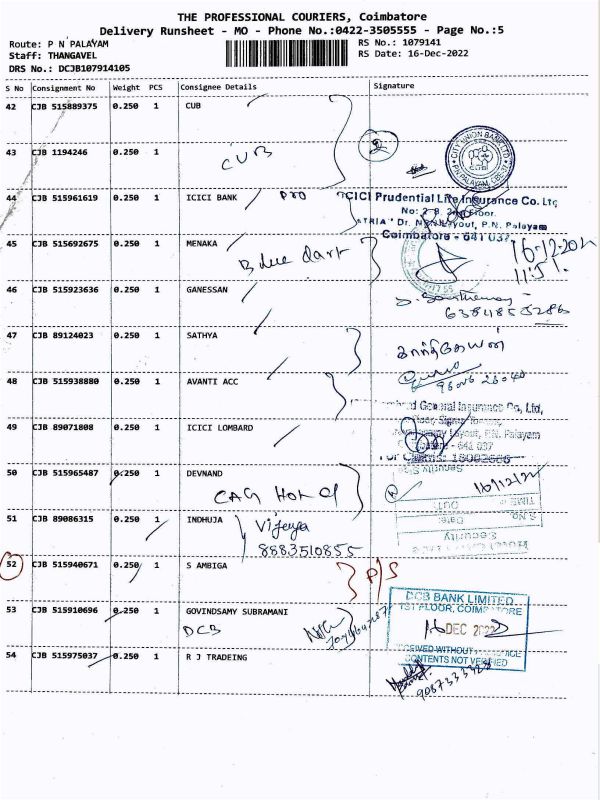 THE PROFESSIONAL COURIERS, Coimbatore
Delivery Runsheet - MO - Phone No.:0422-3505555 - Page No.:5
Route: P N PALAYAM
RS No.: 1079141
Staff: THANGAVEL
RS Date: 16-Dec-2022
DRS No.: DCJB107914105
S No Consignment No Weight PCS Consignee Details Signature
42 CJB 515889375 0.250 1 CUB
2
CITY UNION BANK LTD
43 CJB 1194246 0.250 1
CUB
44 CJB 515961619 0.250 1 ICICI BANK
Pro
ICICI Prudential Life Insurance Co. Ltd
P.N. Palayam
Coimbatore - 641 037
45 CJB 515692675 0.250 1 MENAKA
Blue dart
11:51
46 CJB 515923636 0.250 1 GANESSAN
47 CJB 89124023 0.250 1 SATHYA
கார்த்திகேயன்
48 CJB 515938880 0.250 1 AVANTI ACC
General Insurance Co, Ltd,
49 CJB 89071808 0.250 1 ICICI LOMBARD
Layout, P.N. Palayam
641 037
50 CJB 515965487 0.250 1 DEVNAND
CAG Hotel
16/12/22
51 CJB 89086315 0.250 1 INDHUJA
Vijeya
8883510855
Security
52 CJB 515940671 0.250 1 S AMBIGA
P/S
53 CJB 515910696 0.250 1 GOVINDSAMY SUBRAMANI
DCB
DCB BANK LIMITED
1ST FLOOR, COIMBATORE
16 DEC 2022
CONTENTS NOT VERIFIED
54 CJB 515975037 0.250 1 R J TRADEING